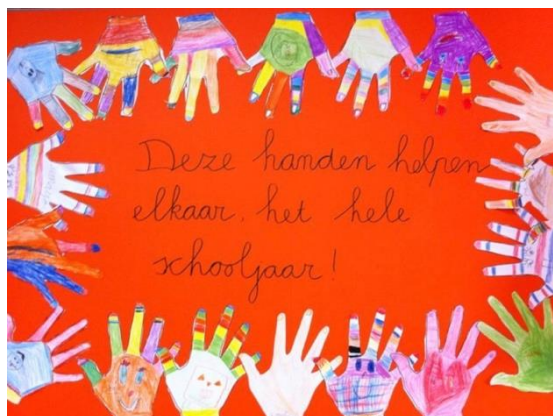 Deze handen helpen
elkaar, het hele
schooljaar!